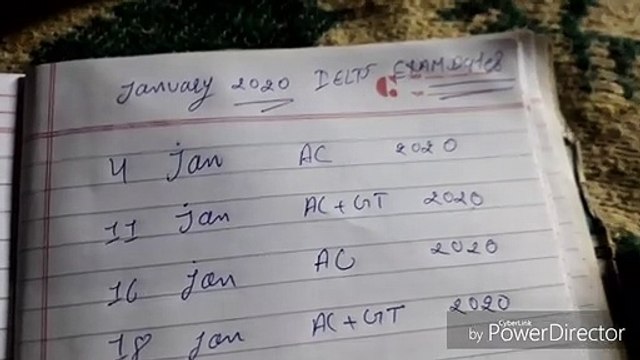 January 2020 IELTS EXAM Dates
4 Jan AC 2020
11 Jan AC+GT 2020
16 Jan AC 2020
18 Jan AC+GT 2020
CyberLink
by PowerDirector